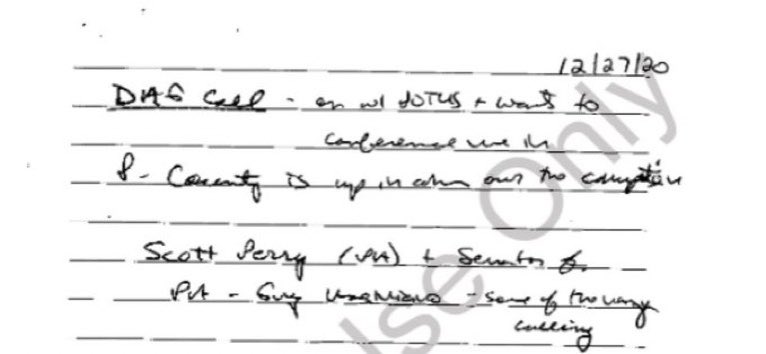 12/27/20
DAG Call - on w/ POTUS + wants to
conference me in
P - Country is up in arms over the corruption
Scott Perry (PA) + Senator
PA - Guy - some of the ones
calling
Use Only